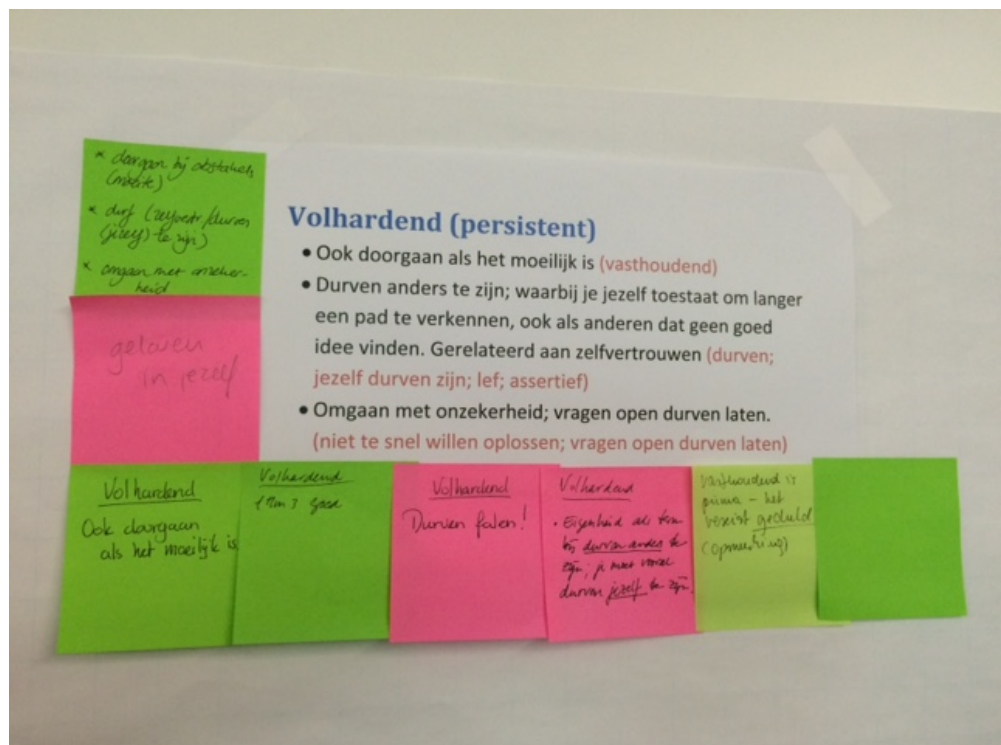 * doorgaan bij obstakels
(moeite)
* durf (zelfvertr/durven
(jezelf) te zijn)
* omgaan met onzeker-
heid
geloven
in jezelf
Volhardend (persistent)
• Ook doorgaan als het moeilijk is (vasthoudend)
• Durven anders te zijn; waarbij je jezelf toestaat om langer
een pad te verkennen, ook als anderen dat geen goed
idee vinden. Gerelateerd aan zelfvertrouwen (durven;
jezelf durven zijn; lef; assertief)
• Omgaan met onzekerheid; vragen open durven laten.
(niet te snel willen oplossen; vragen open durven laten)
Volhardend
Ook doorgaan
als het moeilijk is
Volhardend
1 t/m 3 goed
Volhardend
Durven falen!
Volhardend
• Eigenheid als term
bij durven anders te
zijn; je moet vooral
durven jezelf te zijn.
Vasthoudend is
prima - het
vereist geduld
(opmerking)